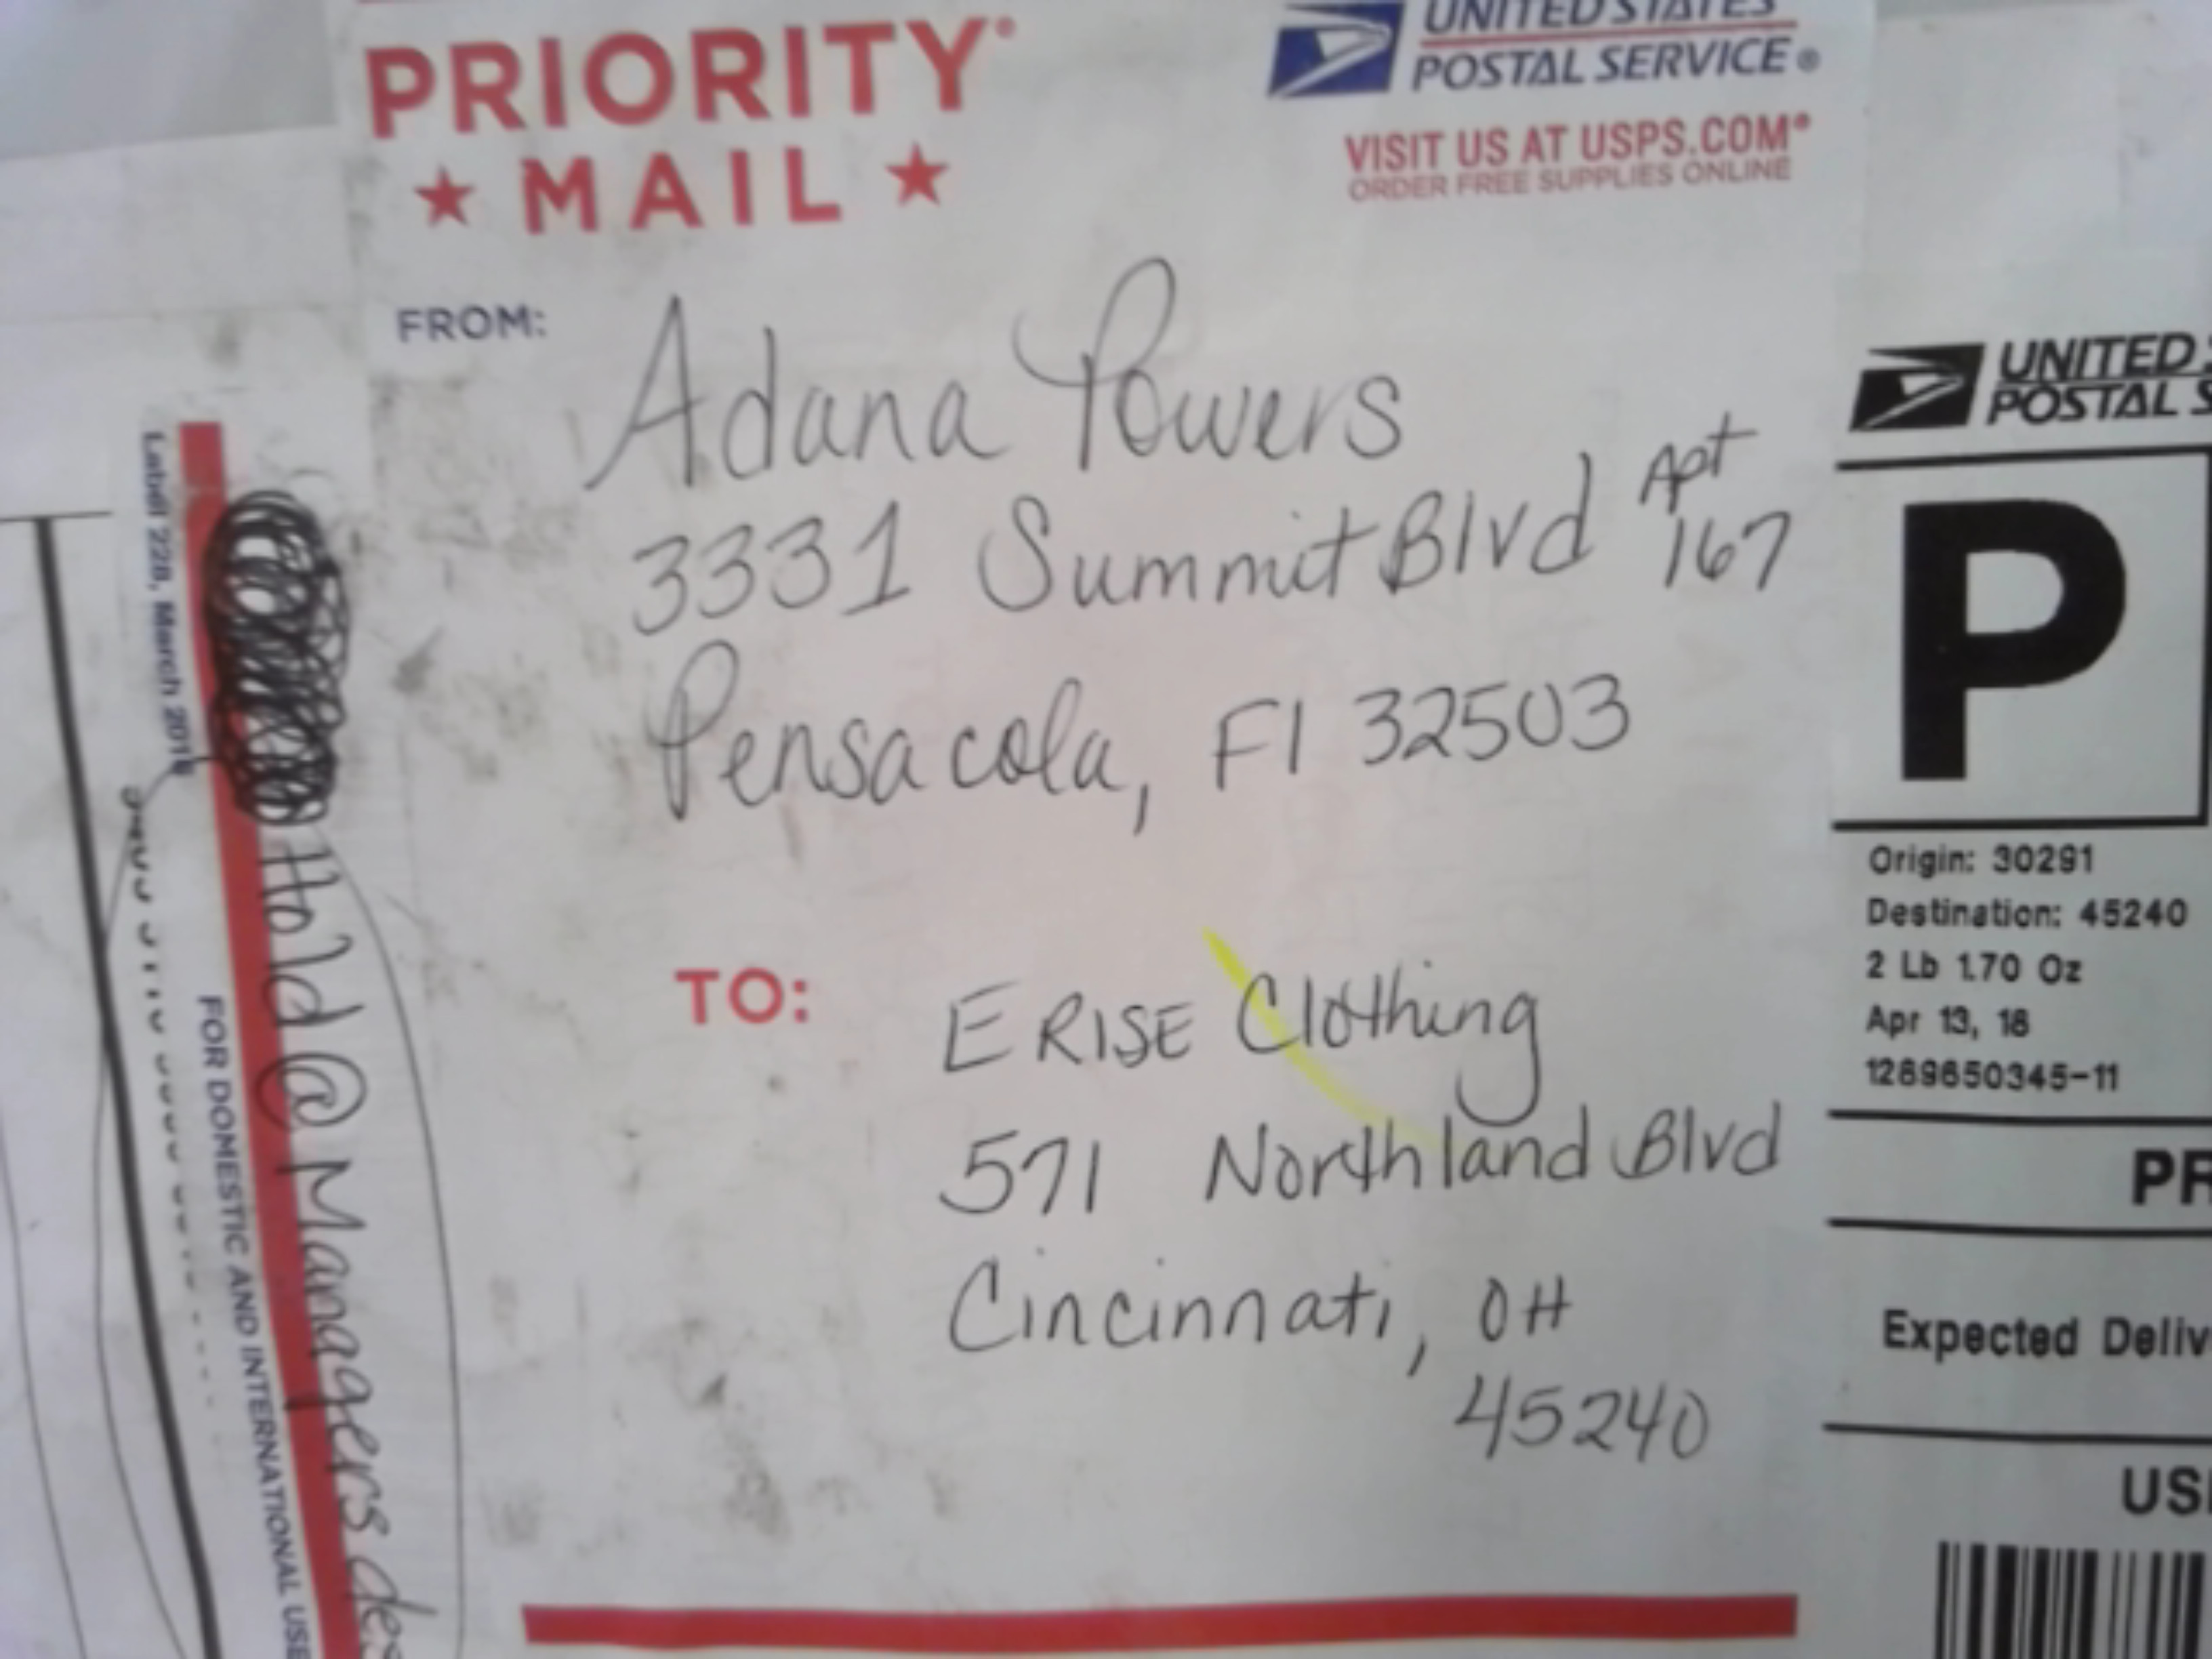 PRIORITY®
★ MAIL ★
UNITED STATES
POSTAL SERVICE®
VISIT US AT USPS.COM®
ORDER FREE SUPPLIES ONLINE
FROM:
Adana Powers
3331 Summit Blvd Apt 167
Pensacola, Fl 32503
TO:
ERISE Clothing
571 Northland Blvd
Cincinnati, OH
45240
Label 228, March 2016
FOR DOMESTIC AND INTERNATIONAL USE
Hold @ Managers des
UNITED S
POSTAL S
P
Origin: 30291
Destination: 45240
2 Lb 1.70 Oz
Apr 13, 18
1269650345-11
PR
Expected Deliv
US